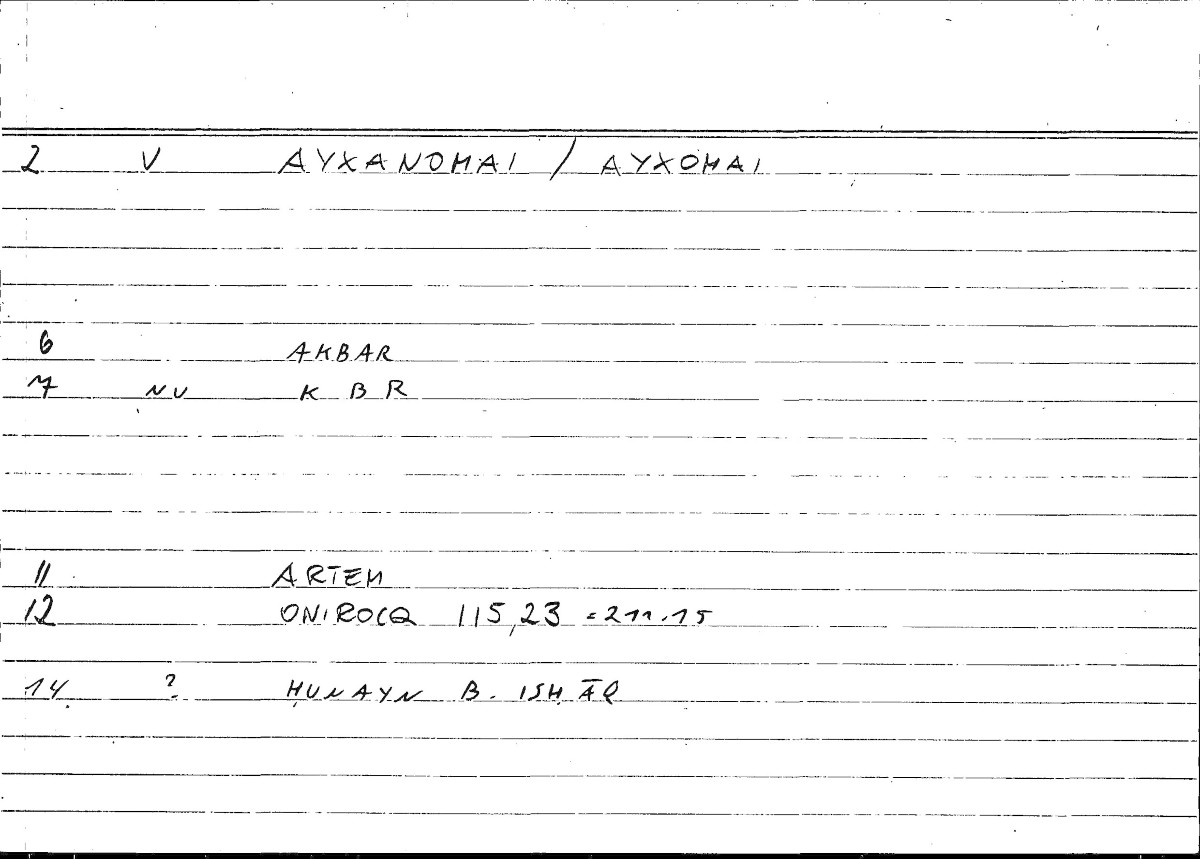 2 V AYXANOMAI / AYXOMAI
6 AKBAR
7 NV K B R
11 ARTEM
12 ONIROCR 115,23 = 211.15
14 ? ḤUNAYN B. ISḤĀQ